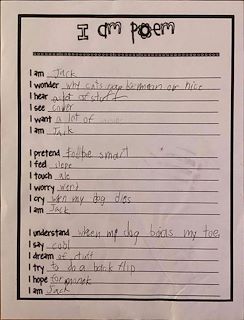 I am poem
I am Jack
I wonder why cats can be mean or nice
I hear a lot of stuff
I see cover
I want a lot of
I am Jack
I pretend to be smart
I feel
I touch
I worry
I cry when my dog dies
I am Jack
I understand when my dog my toe
I say cool
I dream of stuff
I try to do a back flip
I hope for
I am Jack